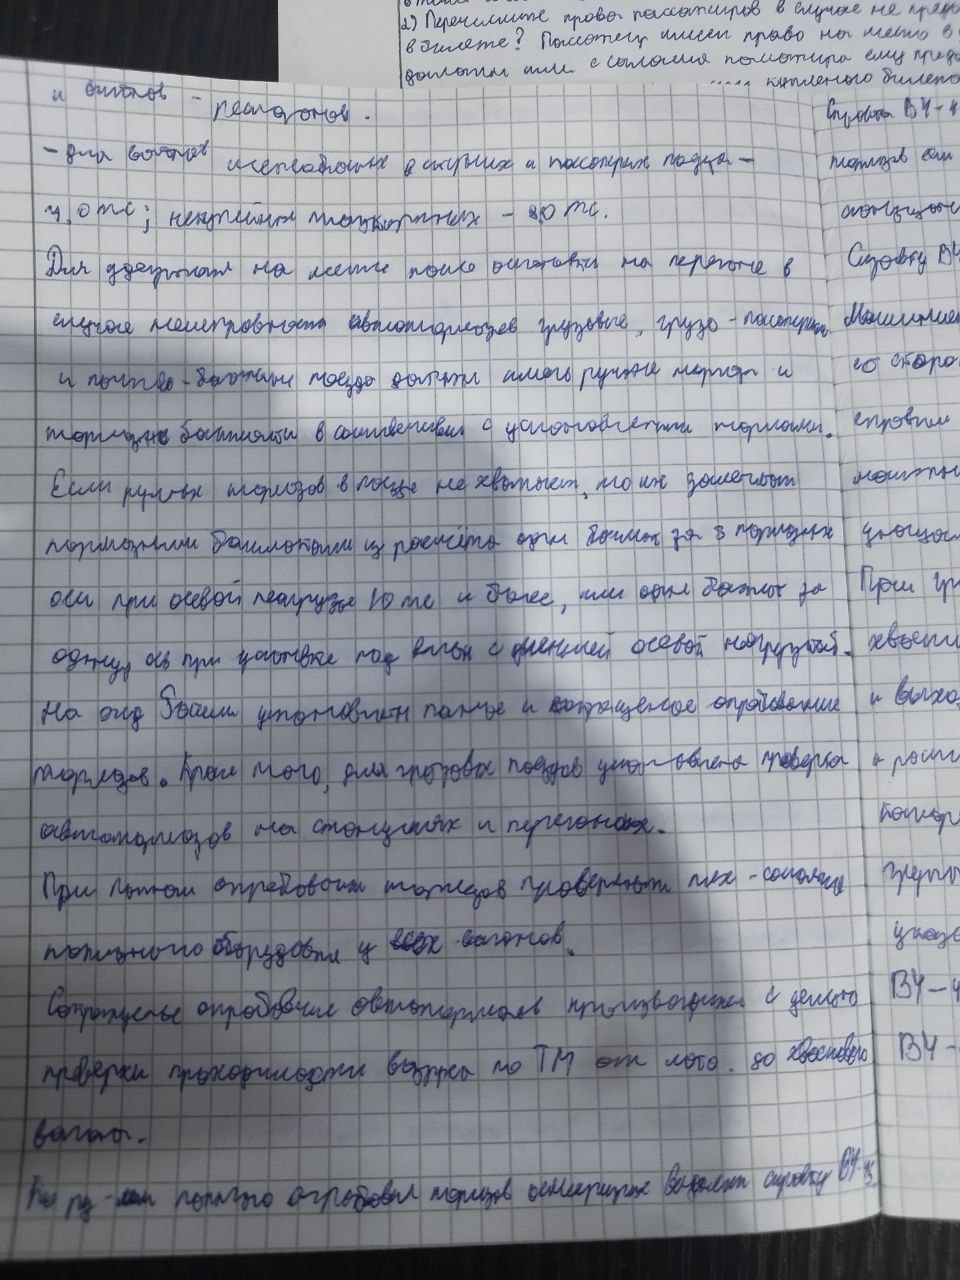 2) Перечислите права пассажиров в случае не
в билете? Пассажир имеет право на место в
доплаты или с согласия пассажира ему
купленого билета
и вагонов - ресторанов.
- для вагонов в скорых и пассажирск поездах -
7,0 тс; - 8,0 тс.
Для удержания на месте после остановки на перегоне в
случае неисправности автотормозов грузовые, грузо-пассажирск
и почтово-багажные поезда должны иметь ручные тормоза и
тормозные башмаки в соответствии с установлеными нормами.
Если ручных тормозов в поезде не хватает, то их заменяют
тормозными башмаками из расчёта один башмак за 3 тормозных
оси при осевой нагрузке 10 тс и более, или один башмак за
одну ось при установке под вагон с меньшей осевой нагрузкой.
На жд России установлен полное и сокращеное опробование
тормозов. Кроме того, для грузовых поездов установлена проверка
автотормозов на станциях и перегонах.
При полном опробовании тормозов проверяют тех-состояние
тормозного оборудования у всех вагонов.
Сокращенное опробование автотормозов производится с целью
проверки проходимости воздуха по ТМ от локо. до хвостового
вагона.
полного опробования тормозов осмотрщик справку ВУ-45.
Справка ВУ-4
тормозов
станции
Справку ВУ
Машинист
со сторо
При
хвости
и выход
ВУ-4
ВУ-